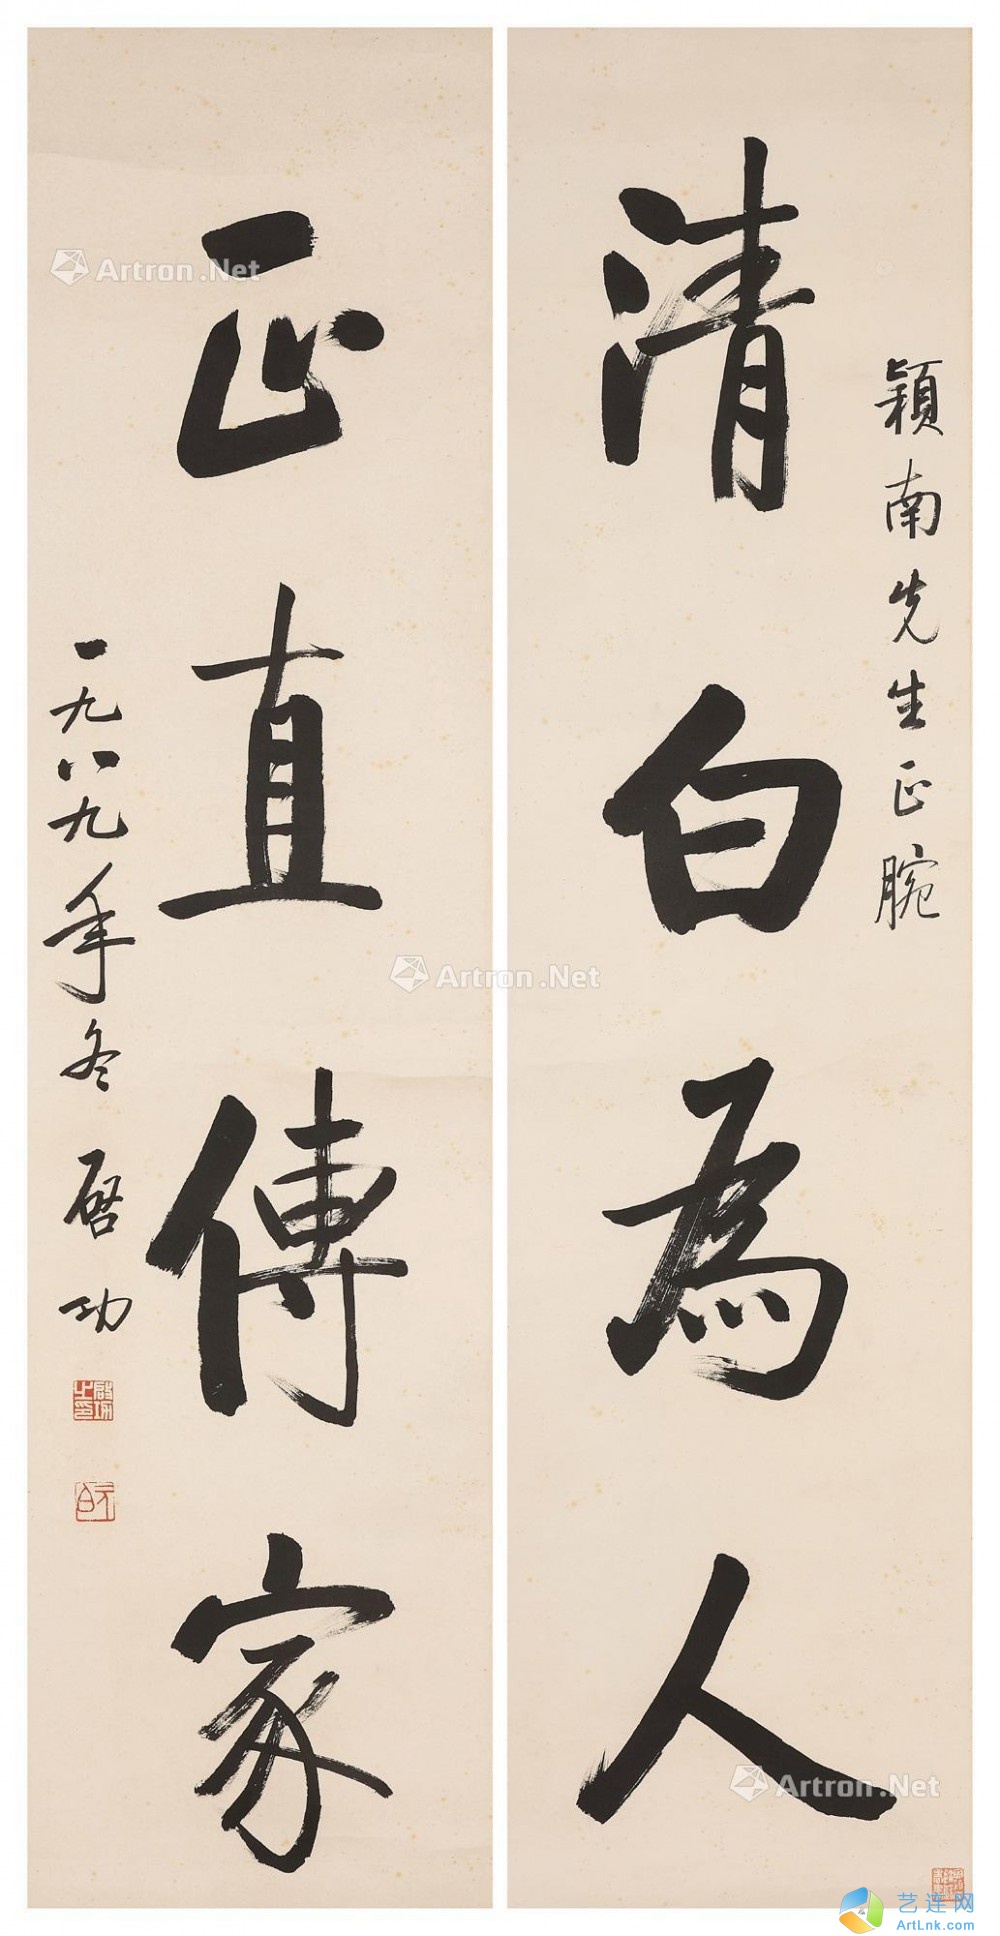 穎南先生正腕
清白為人
正直傳家
一九八九年冬
启功
啟功之印
元白
Artron.Net
Artron.Net
Artron.Net
艺连网
ArtLnk.com